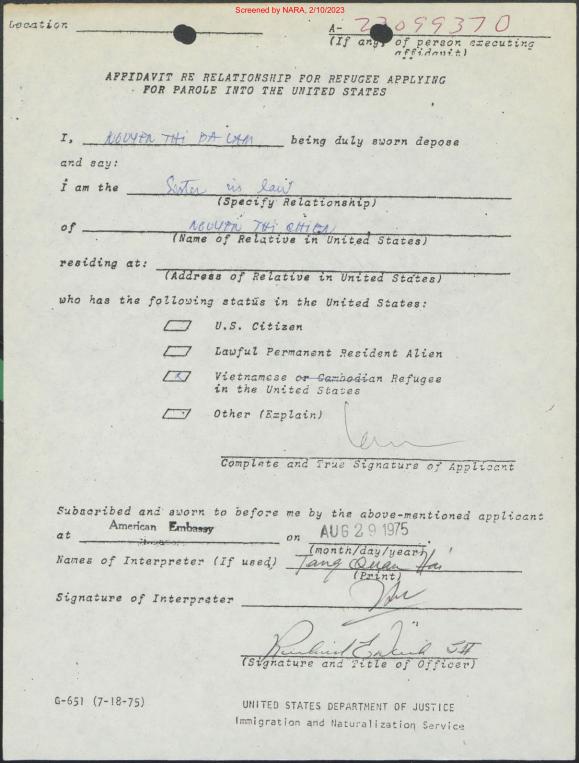 Screened by NARA, 2/10/2023
Location
A- 22099370
(If any of person executing
affidavit)
AFFIDAVIT RE RELATIONSHIP FOR REFUGEE APPLYING
FOR PAROLE INTO THE UNITED STATES
I, NGUYEN THI BA LAM being duly sworn depose
and say:
I am the Sister in law
(Specify Relationship)
of NGUYEN THI CHIEN
(Name of Relative in United States)
residing at:
(Address of Relative in United States)
who has the following status in the United States:
U.S. Citizen
Lawful Permanent Resident Alien
x Vietnamese or Cambodian Refugee
in the United States
Other (Explain)
Complete and True Signature of Applicant
Subscribed and sworn to before me by the above-mentioned applicant
at American Embassy on AUG 29 1975.
(month/day/year)
Names of Interpreter (If used) Tang Quan Hai
(Print)
Signature of Interpreter
(Signature and Title of Officer)
G-651 (7-18-75)
UNITED STATES DEPARTMENT OF JUSTICE
Immigration and Naturalization Service